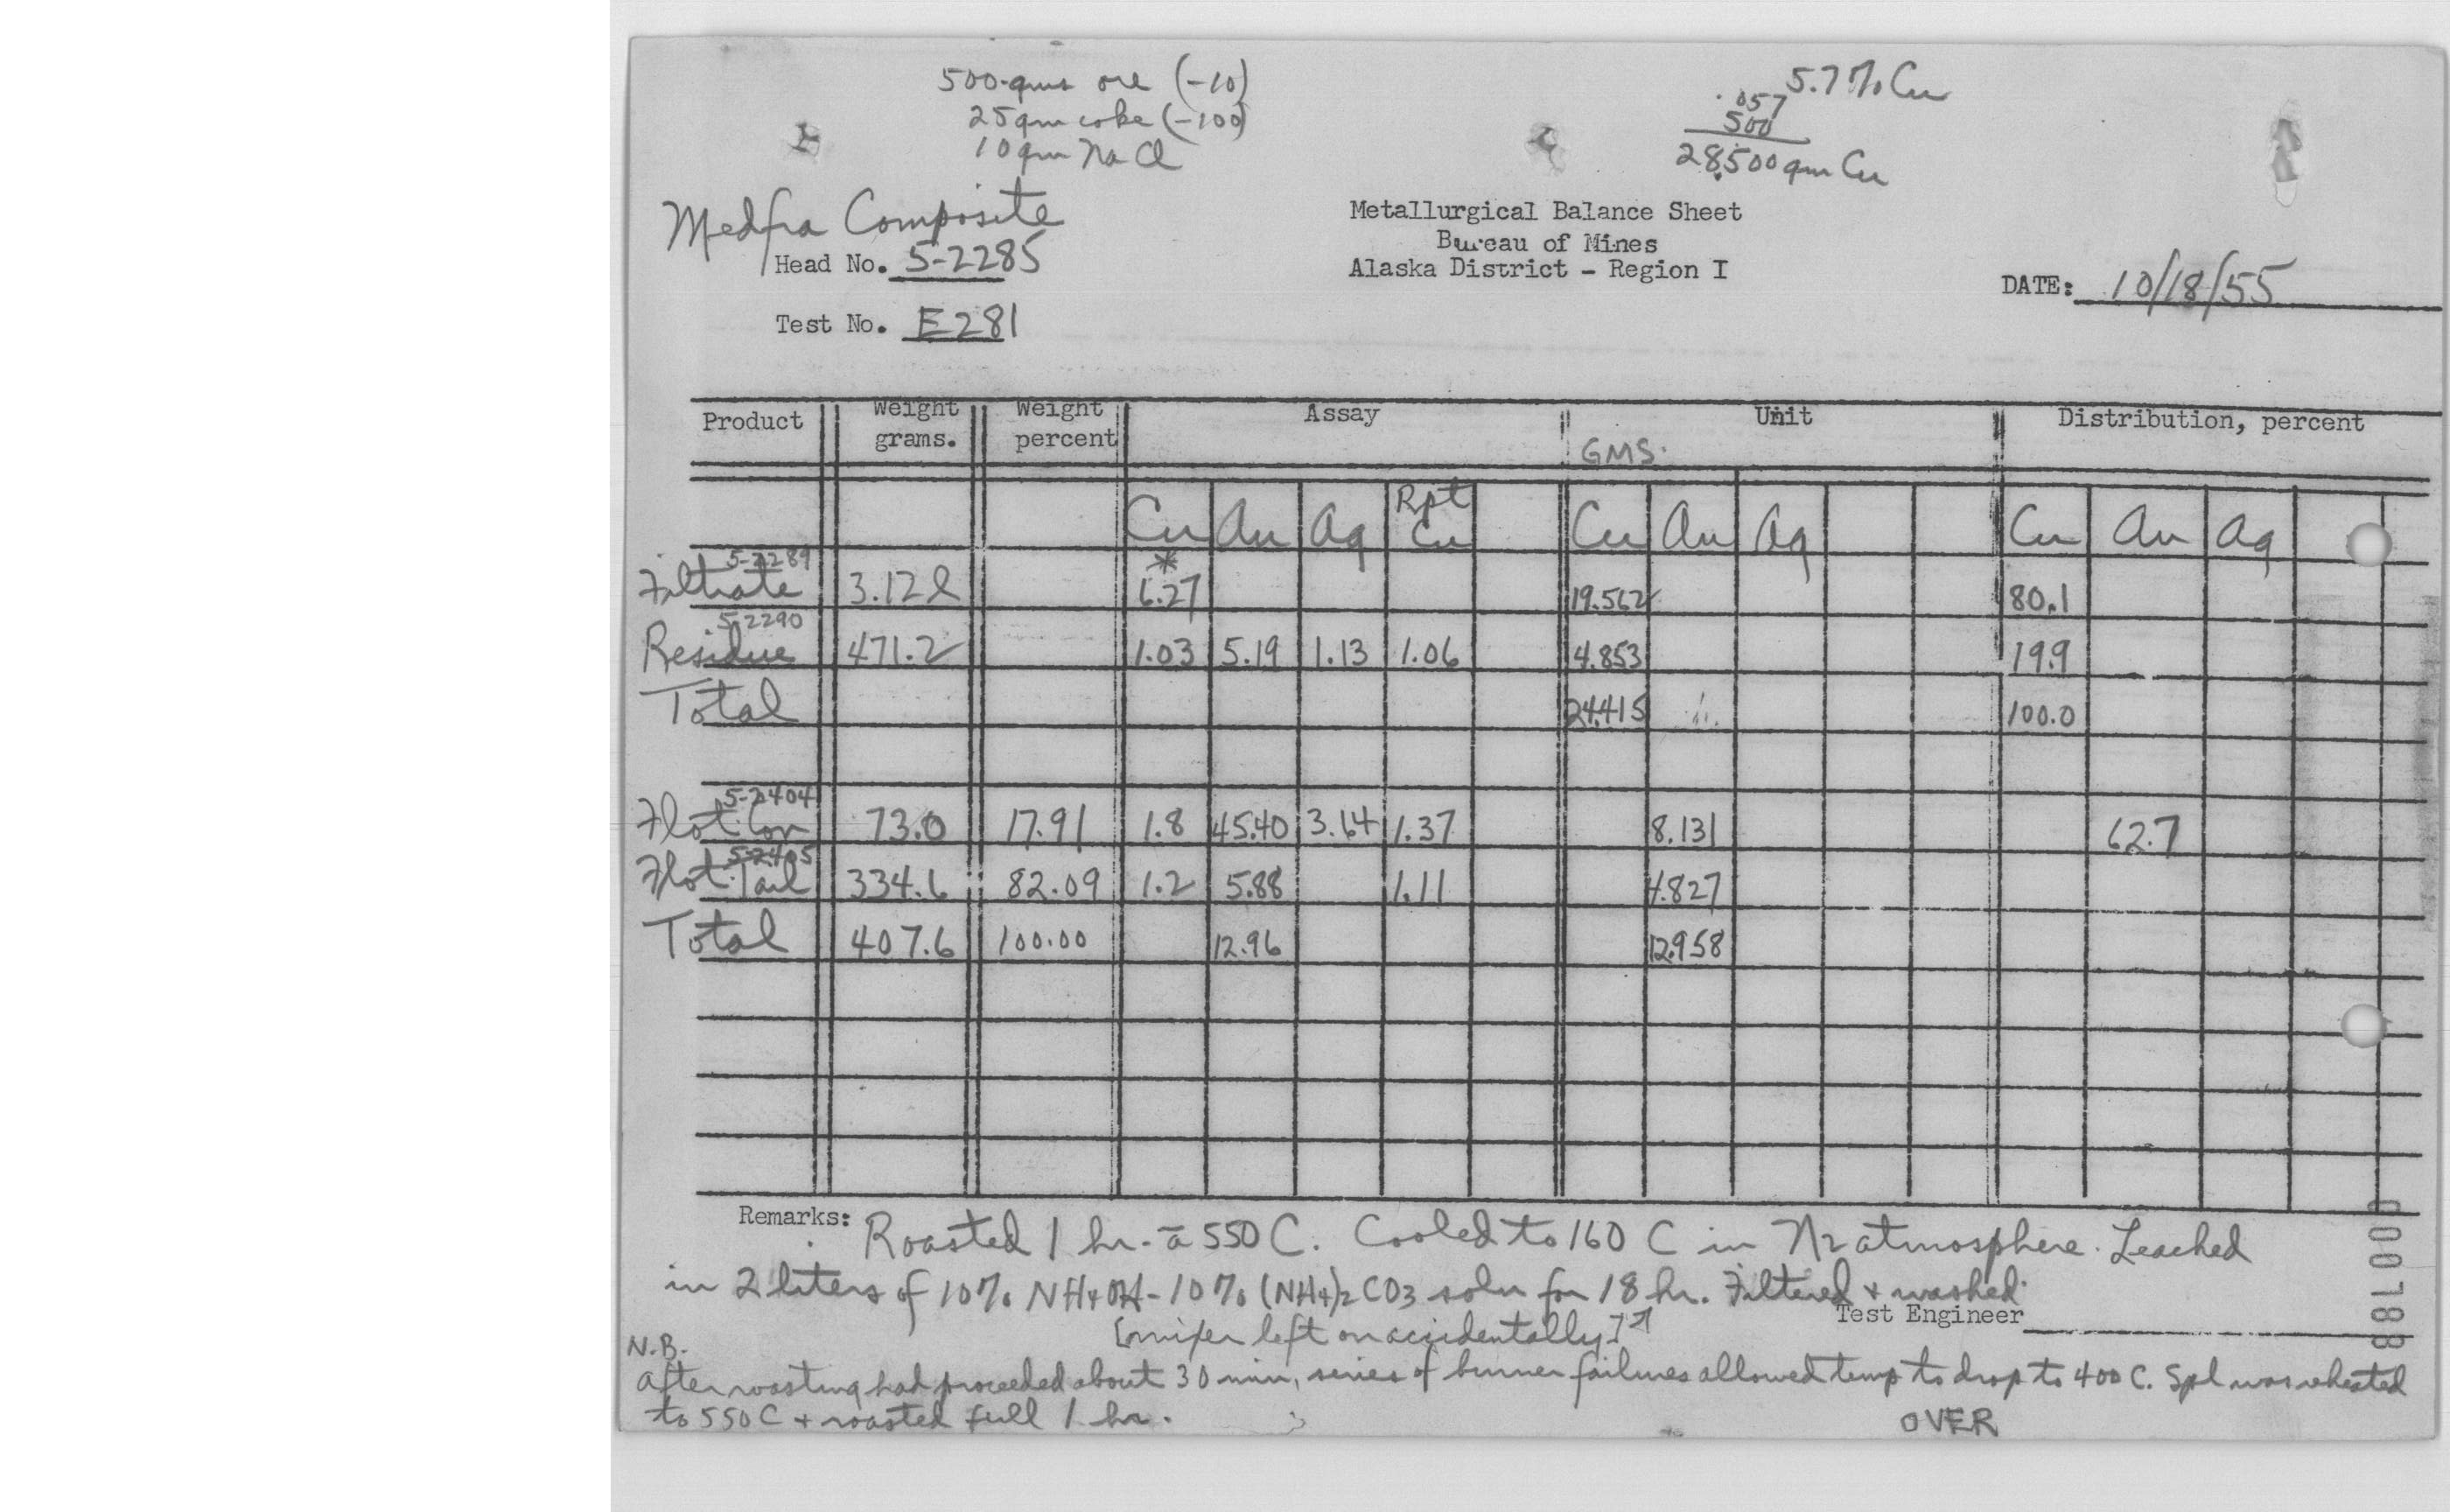 500 gms ore (-10)
25 gm coke (-100)
10 gm NaCl
5.7% Cu
.057
500
28.500 gm Cu
Medfra Composite
Head No. 5-2285
Test No. E281
Metallurgical Balance Sheet
Bureau of Mines
Alaska District - Region I
DATE: 10/18/55
Product Weight grams. Weight percent Assay Unit Distribution, percent
GMS.
Cu Au Ag Rpt Cu Cu Au Ag Cu Au Ag
*
Filtrate 5-2289 3.12 l 6.27 19.562 80.1
Residue 5-2290 471.2 1.03 5.19 1.13 1.06 4.853 19.9
Total 24.415 100.0
Flot. Con 5-2404 73.0 17.91 1.8 45.40 3.64 1.37 8.131 62.7
Flot. Tail 5-2405 334.6 82.09 1.2 5.88 1.11 4.827
Total 407.6 100.00 12.96 12.958
Remarks: Roasted 1 hr. @ 550 C. Cooled to 160 C in N2 atmosphere. Leached
in 2 liters of 10% NH4OH - 10% (NH4)2CO3 soln for 18 hr. Filtered + washed.
[mixer left on accidentally]
Test Engineer
N.B.
After roasting had proceeded about 30 min, series of burner failures allowed temp to drop to 400 C. Spl was reheated
to 550 C + roasted full 1 hr.
OVER
00188